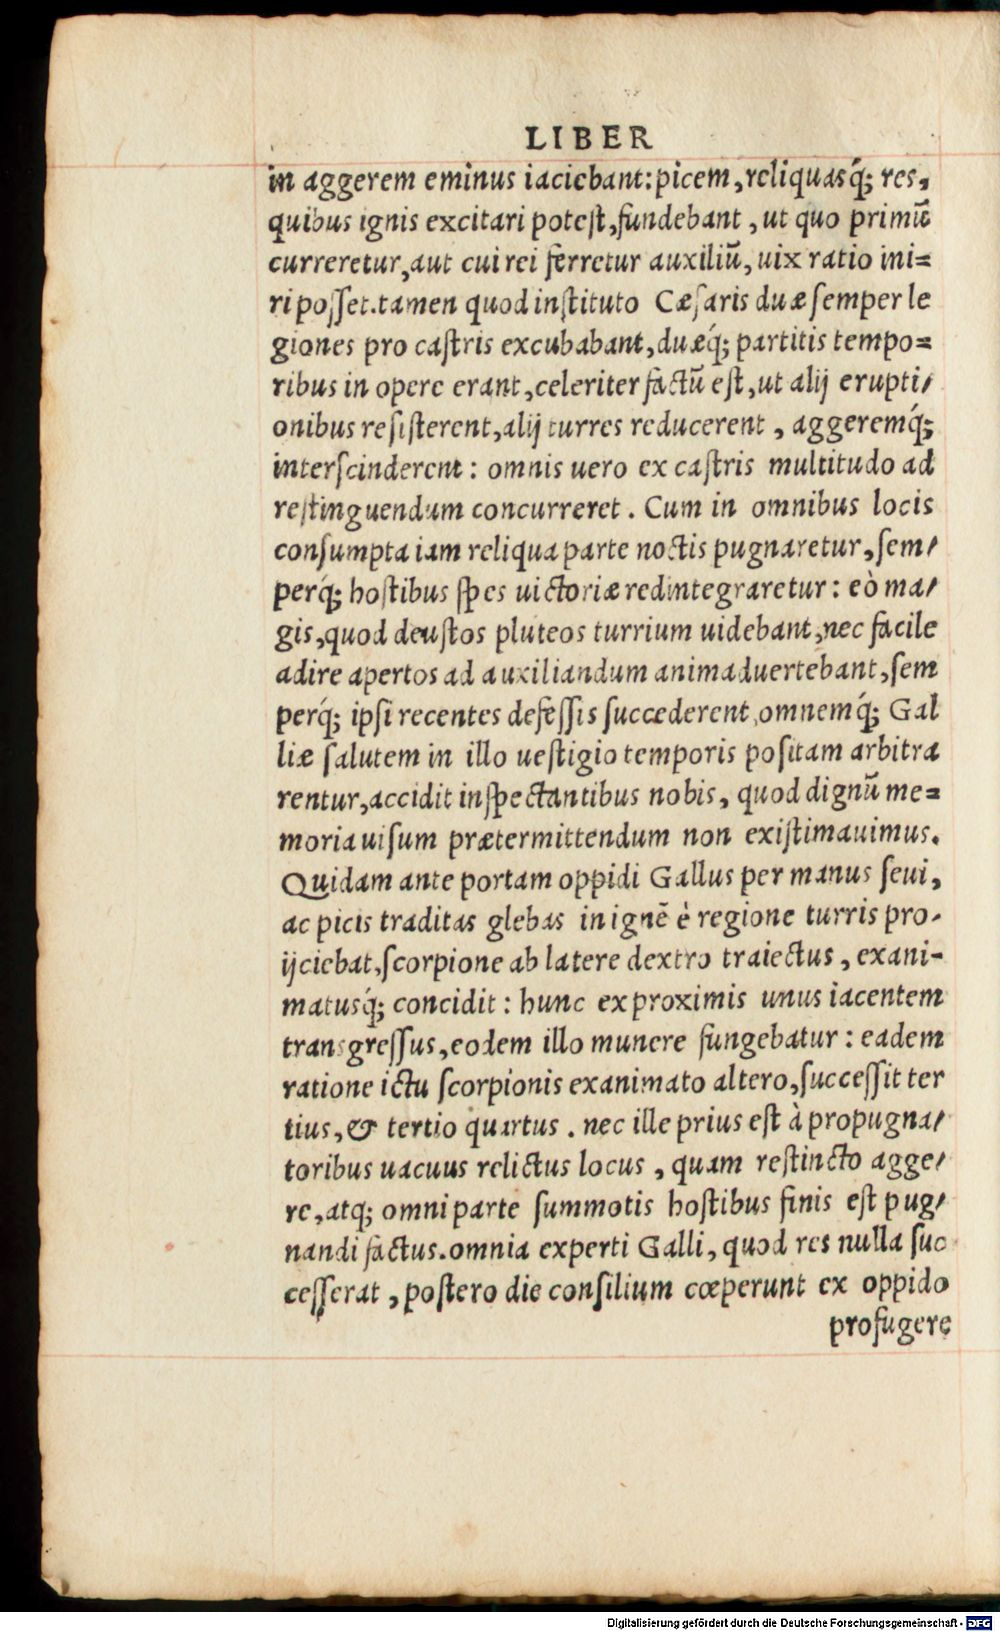 LIBER
in aggerem eminus iaciebant: picem, reliquasq́; res,
quibus ignis excitari potest, fundebant, ut quo primũ
curreretur, aut cui rei ferretur auxiliũ, uix ratio ini=
ri posset. tamen quod instituto Cæsaris duæ semper le
giones pro castris excubabant, duæq́; partitis tempo=
ribus in opere erant, celeriter factũ est, ut alij erupti/
onibus resisterent, alij turres reducerent, aggeremq́;
interscinderent: omnis uero ex castris multitudo ad
restinguendum concurreret. Cum in omnibus locis
consumpta iam reliqua parte noctis pugnaretur, sem/
perq́; hostibus spes uictoriæ redintegraretur: eò ma/
gis, quod deustos pluteos turrium uidebant, nec facile
adire apertos ad auxiliandum animaduertebant, sem
perq́; ipsi recentes defessis succederent, omnemq́; Gal
liæ salutem in illo uestigio temporis positam arbitra
rentur, accidit inspectantibus nobis, quod dignũ me=
moria uisum prætermittendum non existimauimus.
Quidam ante portam oppidi Gallus per manus seui,
ac picis traditas glebas in ignẽ è regione turris pro-
ijciebat, scorpione ab latere dextro traiectus, exani-
matusq́; concidit: hunc ex proximis unus iacentem
transgressus, eodem illo munere fungebatur: eadem
ratione ictu scorpionis exanimato altero, successit ter
tius, & tertio quartus. nec ille prius est à propugna/
toribus uacuus relictus locus, quam restincto agge/
re, atq; omni parte summotis hostibus finis est pug/
nandi factus. omnia experti Galli, quod res nulla suc
cesserat, postero die consilium cœperunt ex oppido
profugere
Digitalisierung gefördert durch die Deutsche Forschungsgemeinschaft - DFG